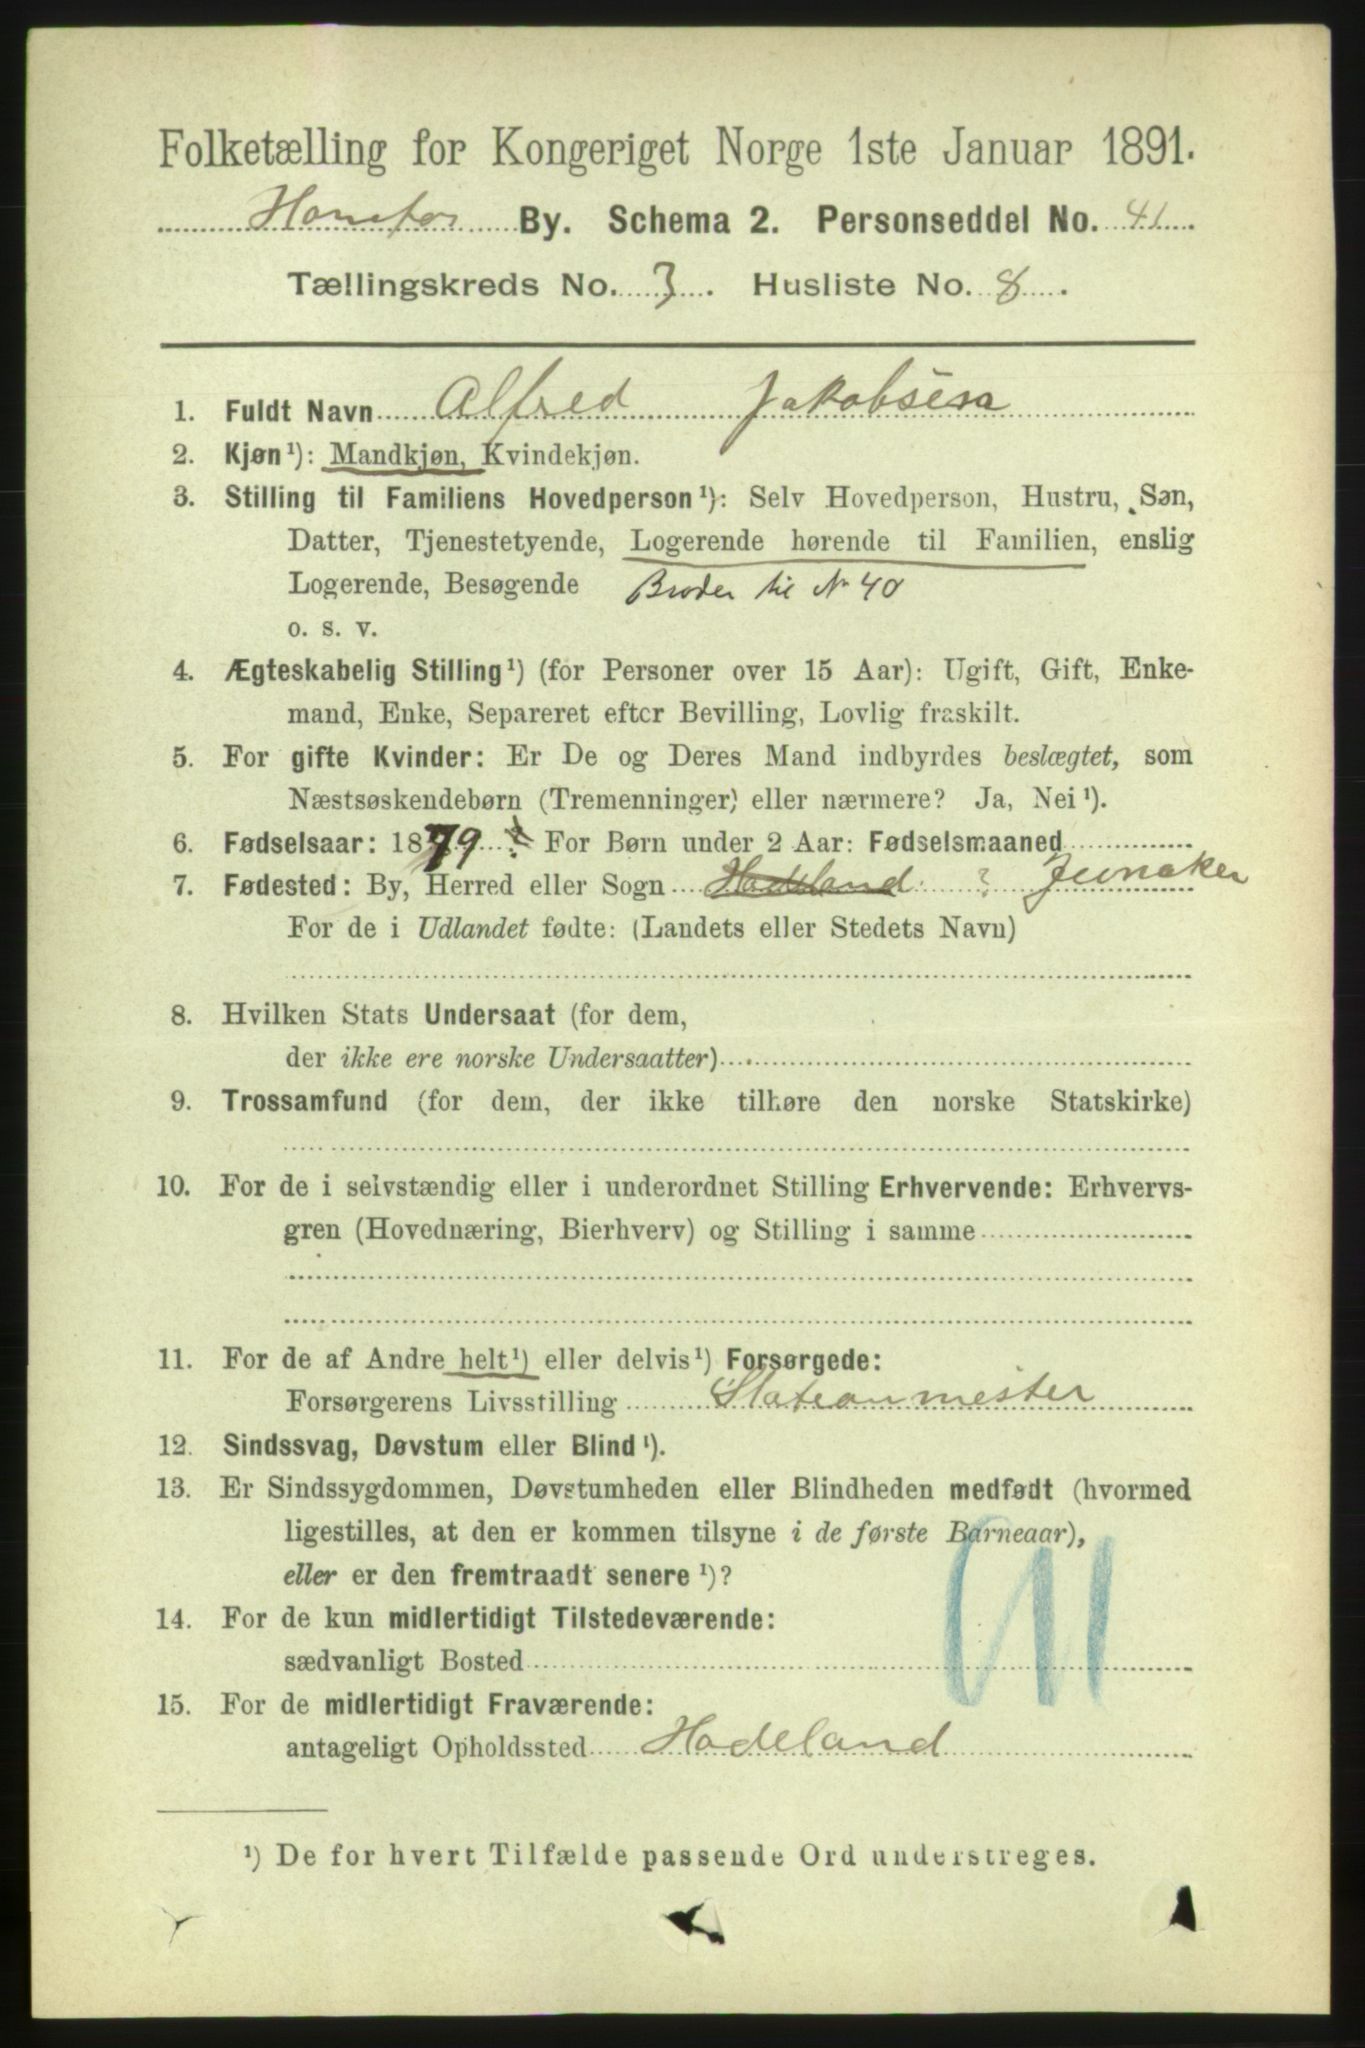 Folketælling for Kongeriget Norge 1ste Januar 1891.
Hønefos By. Schema 2. Personseddel No. 41
Tællingskreds No. 3. Husliste No. 8.
1. Fuldt Navn Alfred Jakobsen
2. Kjøn¹): Mandkjøn, Kvindekjøn.
3. Stilling til Familiens Hovedperson¹): Selv Hovedperson, Hustru, Søn,
Datter, Tjenestetyende, Logerende hørende til Familien, enslig
Logerende, Besøgende Broder til N 40
o. s. v.
4. Ægteskabelig Stilling¹) (for Personer over 15 Aar): Ugift, Gift, Enke-
mand, Enke, Separeret efter Bevilling, Lovlig fraskilt.
5. For gifte Kvinder: Er De og Deres Mand indbyrdes beslægtet, som
Næstsøskendebørn (Tremenninger) eller nærmere? Ja, Nei¹).
6. Fødselsaar: 1879 ? For Børn under 2 Aar: Fødselsmaaned
7. Fødested: By, Herred eller Sogn Hadeland ? Jevnaker
For de i Udlandet fødte: (Landets eller Stedets Navn)
8. Hvilken Stats Undersaat (for dem,
der ikke ere norske Undersaatter)
9. Trossamfund (for dem, der ikke tilhøre den norske Statskirke)
10. For de i selvstændig eller i underordnet Stilling Erhvervende: Erhvervs-
gren (Hovednæring, Bierhverv) og Stilling i samme
11. For de af Andre helt¹) eller delvis¹) Forsørgede:
Forsørgerens Livsstilling Stationmester
12. Sindssvag, Døvstum eller Blind¹).
13. Er Sindssygdommen, Døvstumheden eller Blindheden medfødt (hvormed
ligestilles, at den er kommen tilsyne i de første Barneaar),
eller er den fremtraadt senere¹)?
14. For de kun midlertidigt Tilstedeværende:
sædvanligt Bosted
15. For de midlertidigt Fraværende:
antageligt Opholdssted Hadeland
¹) De for hvert Tilfælde passende Ord understreges.